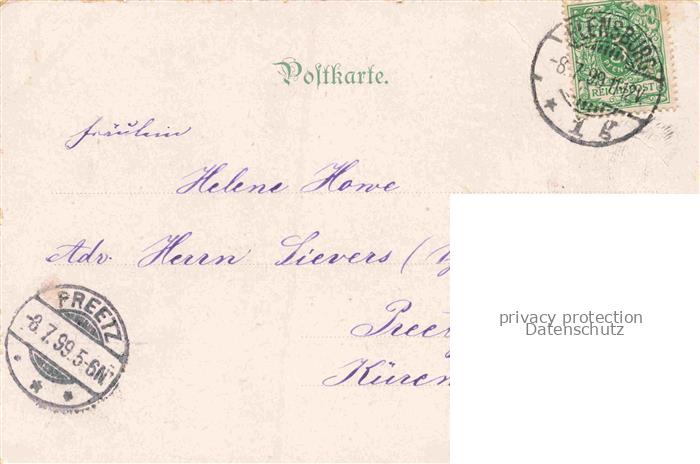 FLENSBURG
-8.7.99.11-12V.
* 1 g
REICHSPOST
Postkarte.
Fräulein
Helene Howe
Adr. Herrn Sievers (
Preetz
PREETZ
-8.7.99.5-6N.
* *
privacy protection
Datenschutz